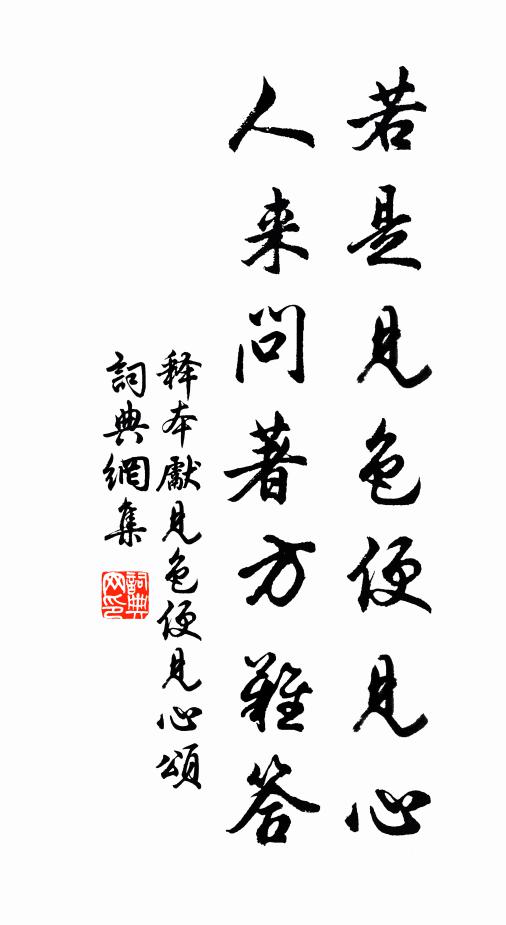 若是见色便见心
人来问著方难答
释本獻见色便见心頌
詞典網集
詞典网印